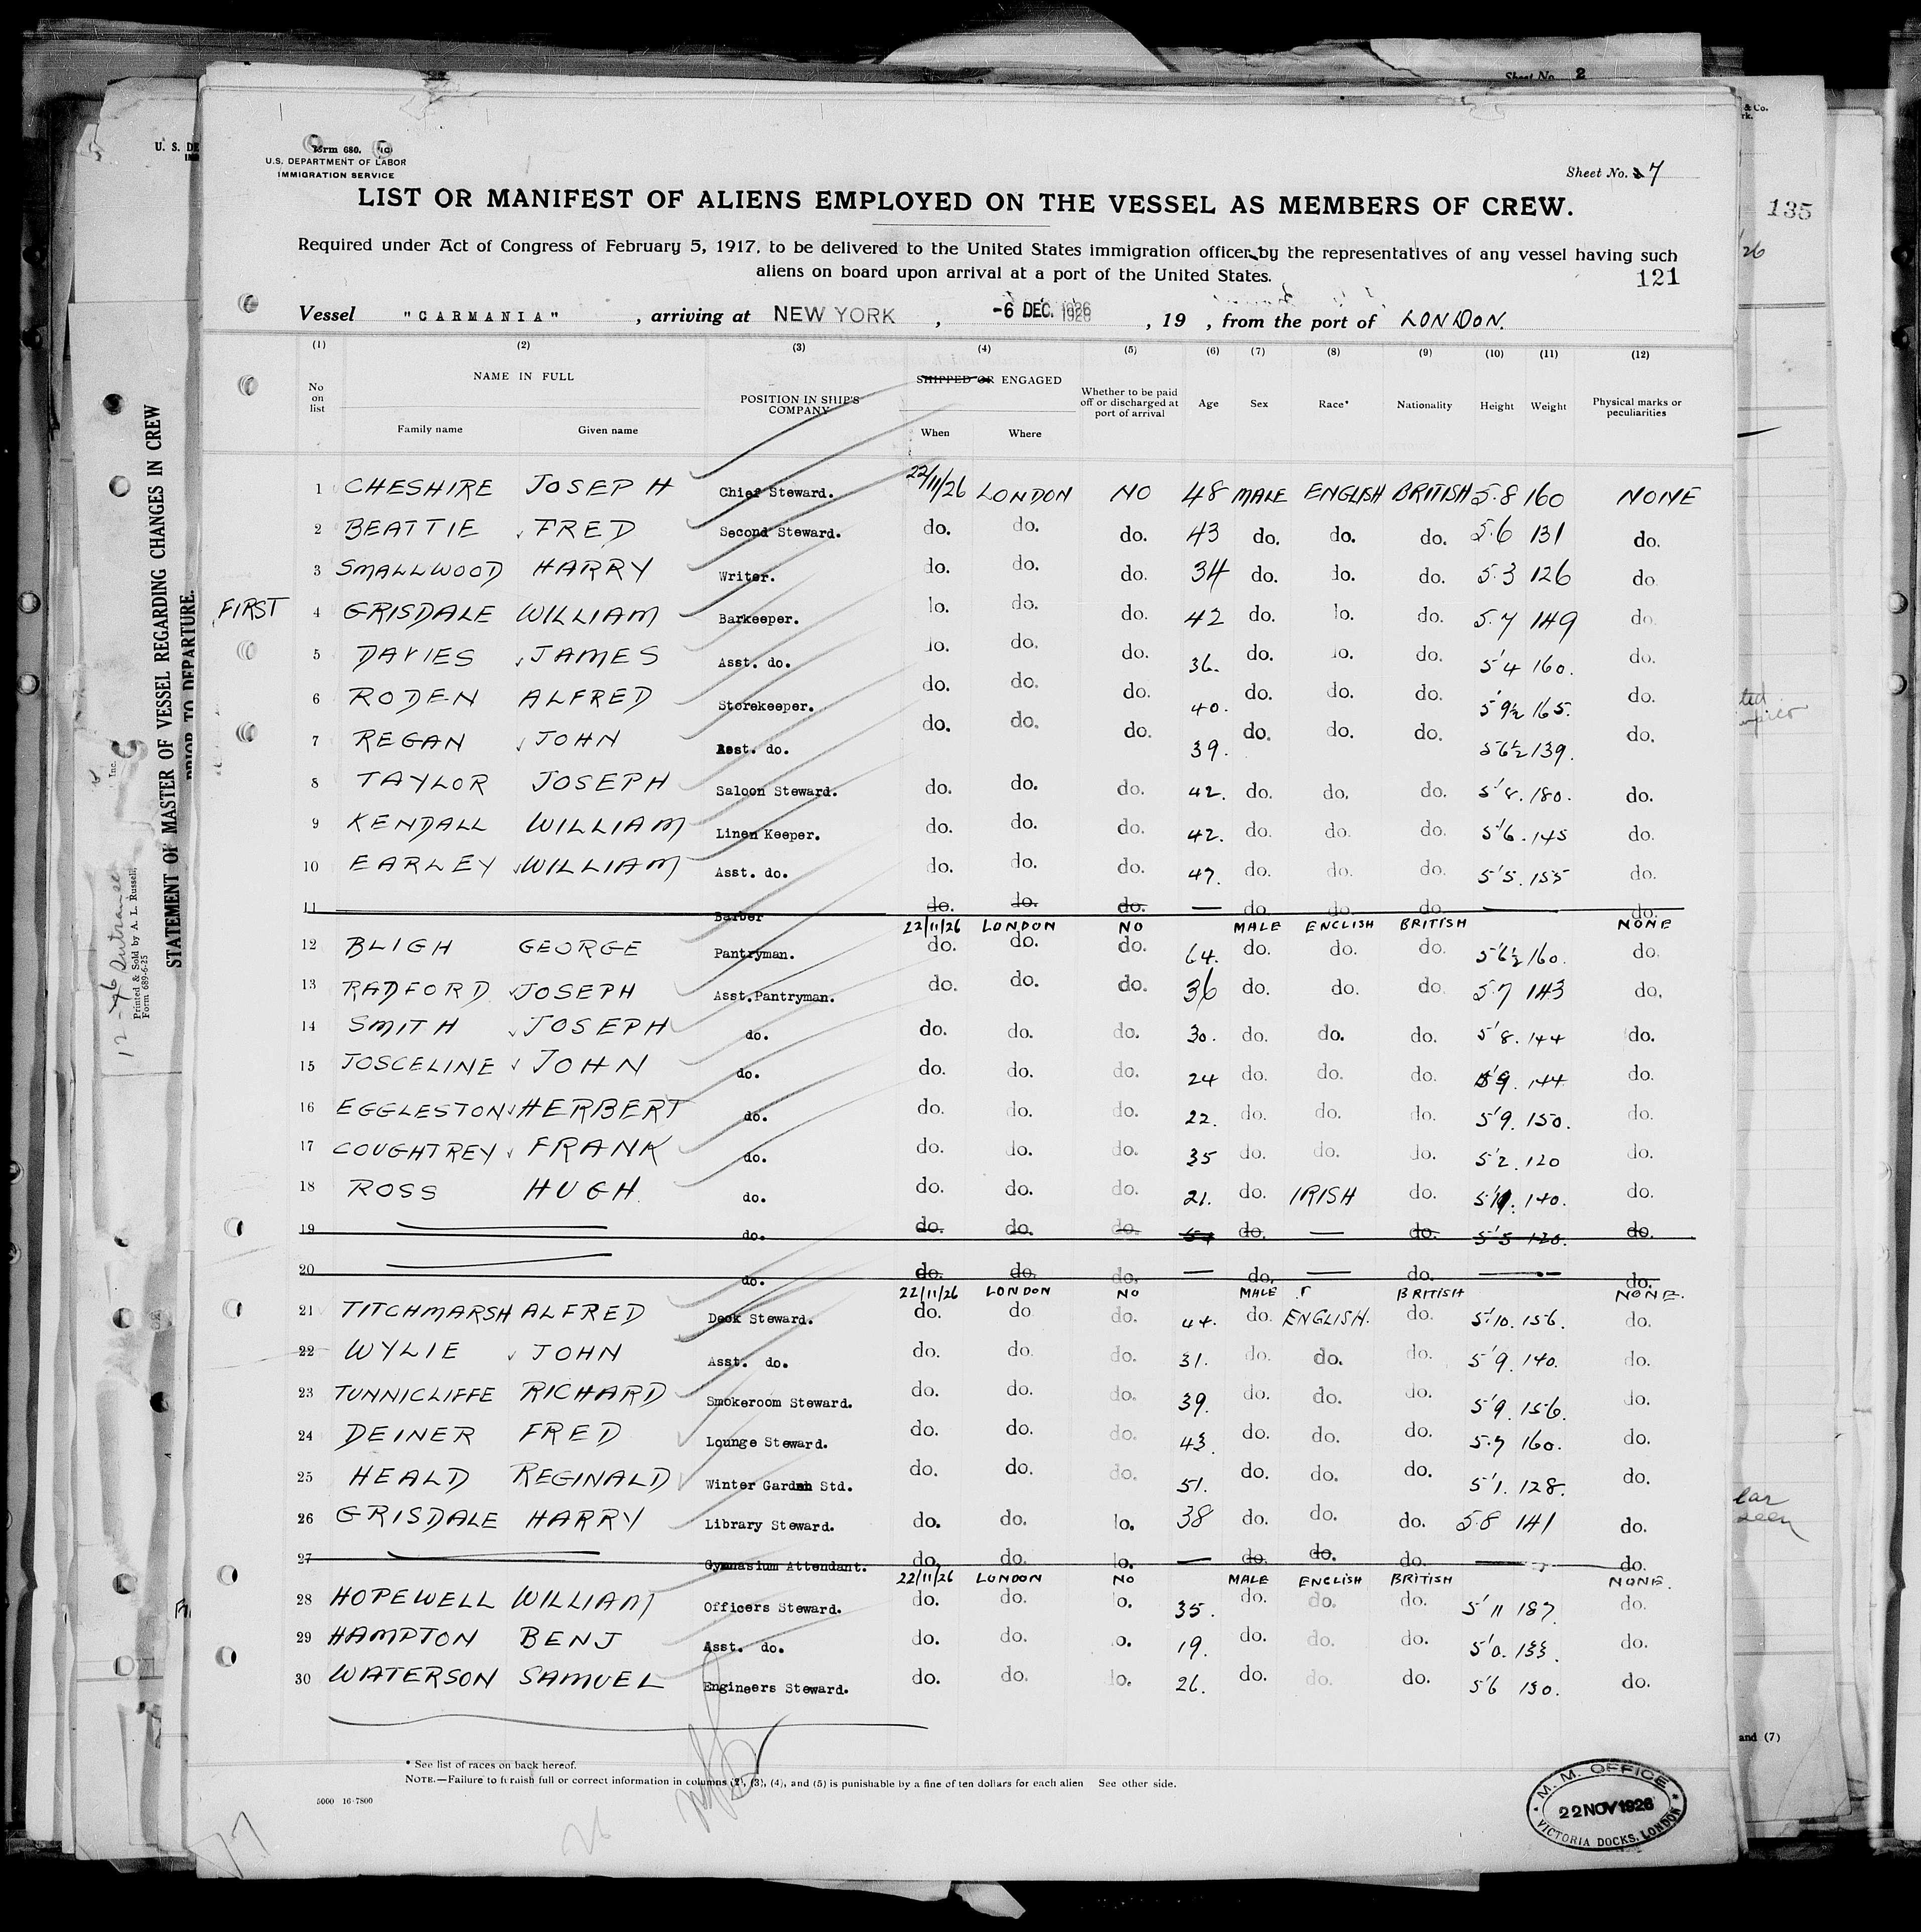 Sheet No. 2
U. S. DE
& Co.
rk.
135
26
STATEMENT OF MASTER OF VESSEL REGARDING CHANGES IN CREW
PRIOR TO DEPARTURE.
Printed & Sold by A. L. Russell,
Inc.
Form 689-6-25
and (7)
Form 680.
U.S. DEPARTMENT OF LABOR
IMMIGRATION SERVICE
Sheet No. 7
LIST OR MANIFEST OF ALIENS EMPLOYED ON THE VESSEL AS MEMBERS OF CREW.
Required under Act of Congress of February 5, 1917, to be delivered to the United States immigration officer by the representatives of any vessel having such
aliens on board upon arrival at a port of the United States.
121
Vessel "CARMANIA" , arriving at NEW YORK , -6 DEC. 1926 , 19 , from the port of LONDON.
(1) (2) (3) (4) (5) (6) (7) (8) (9) (10) (11) (12)
No on list NAME IN FULL Family name Given name POSITION IN SHIP'S COMPANY SHIPPED OR ENGAGED When Where Whether to be paid off or discharged at port of arrival Age Sex Race* Nationality Height Weight Physical marks or peculiarities
1 CHESHIRE JOSEPH Chief Steward. 22/11/26 LONDON NO 48 MALE ENGLISH BRITISH 5.8 160 NONE
2 BEATTIE FRED Second Steward. do. do. do. 43 do. do. do. 5.6 131 do.
3 SMALLWOOD HARRY Writer. do. do. do. 34 do. do. do. 5.3 126 do
FIRST 4 GRISDALE WILLIAM Barkeeper. do. do. do. 42 do. do. do. 5.7 149 do.
5 DAVIES JAMES Asst. do. do. do. do. 36. do. do. do. 5'4 160. do.
6 RODEN ALFRED Storekeeper. do. do. do. 40. do. do. do. 5'9½ 165. do.
7 REGAN JOHN Asst. do. do. do. do. 39. do. do. do. 5'6½ 139. do.
8 TAYLOR JOSEPH Saloon Steward. do. do. do. 42. do. do. do. 5'8. 180. do.
9 KENDALL WILLIAM Linen Keeper. do. do. do. 42. do. do. do. 5'6. 145 do.
10 EARLEY WILLIAM Asst. do. do. do. do. 47. do. do. do. 5'5. 155 do.
11 Barber do. do. do. — do. do. do. — do.
22/11/26 LONDON NO MALE ENGLISH BRITISH NONE
12 BLIGH GEORGE Pantryman. do. do. do. 64. do. do. do. 5'6½ 160. do.
13 RADFORD JOSEPH Asst.Pantryman. do. do. do. 36 do. do. do. 5.7 143 do.
14 SMITH JOSEPH do. do. do. do. 30. do. do. do. 5'8. 144 do.
15 JOSCELINE JOHN do. do. do. do. 24 do. do. do. 5'9. 144 do.
16 EGGLESTON HERBERT do. do. do. do. 22. do. do. do. 5'9. 150. do.
17 COUGHTREY FRANK do. do. do. do. 35 do. do. do. 5'2. 120 do.
18 ROSS HUGH. do. do. do. do. 21. do. IRISH do. 140. do.
19 do. do. do. do. do. — do. 5'5 120. do.
20 do. do. do. do. — do. — do. — do.
22/11/26 LONDON NO MALE BRITISH NONE.
21 TITCHMARSH ALFRED Deck Steward. do. do do. 44. do. ENGLISH. do. 5'10. 156. do.
22 WYLIE JOHN Asst. do. do. do. do. 31. do. do. do. 5'9. 140. do.
23 TUNNICLIFFE RICHARD Smokeroom Steward. do. do. do. 39. do. do. do. 5'9. 156. do.
24 DEINER FRED Lounge Steward. do. do. do. 43. do. do. do. 5.7 160. do.
25 HEALD REGINALD Winter Garden Std. do. do. do. 51. do. do. do. 5'1. 128. do.
26 GRISDALE HARRY Library Steward. do. do. do. 38 do. do. do. 5.8 141 do.
27 Gymnasium Attendant. do. do. do. — do. do. do. — do.
22/11/26 LONDON NO MALE ENGLISH BRITISH NONE.
28 HOPEWELL WILLIAM Officers Steward. do. do. do. 35. do. do. do. 5'11 187. do.
29 HAMPTON BENJ Asst. do. do. do. do. 19. do. do. do. 5'0. 133. do.
30 WATERSON SAMUEL Engineers Steward. do. do. do. 26. do. do. do. 5'6 130. do.
* See list of races on back hereof.
NOTE.—Failure to furnish full or correct information in columns (2), (3), (4), and (5) is punishable by a fine of ten dollars for each alien See other side.
5000 16-7800
77
26
M. M. OFFICE
22 NOV 1926
VICTORIA DOCKS, LONDON